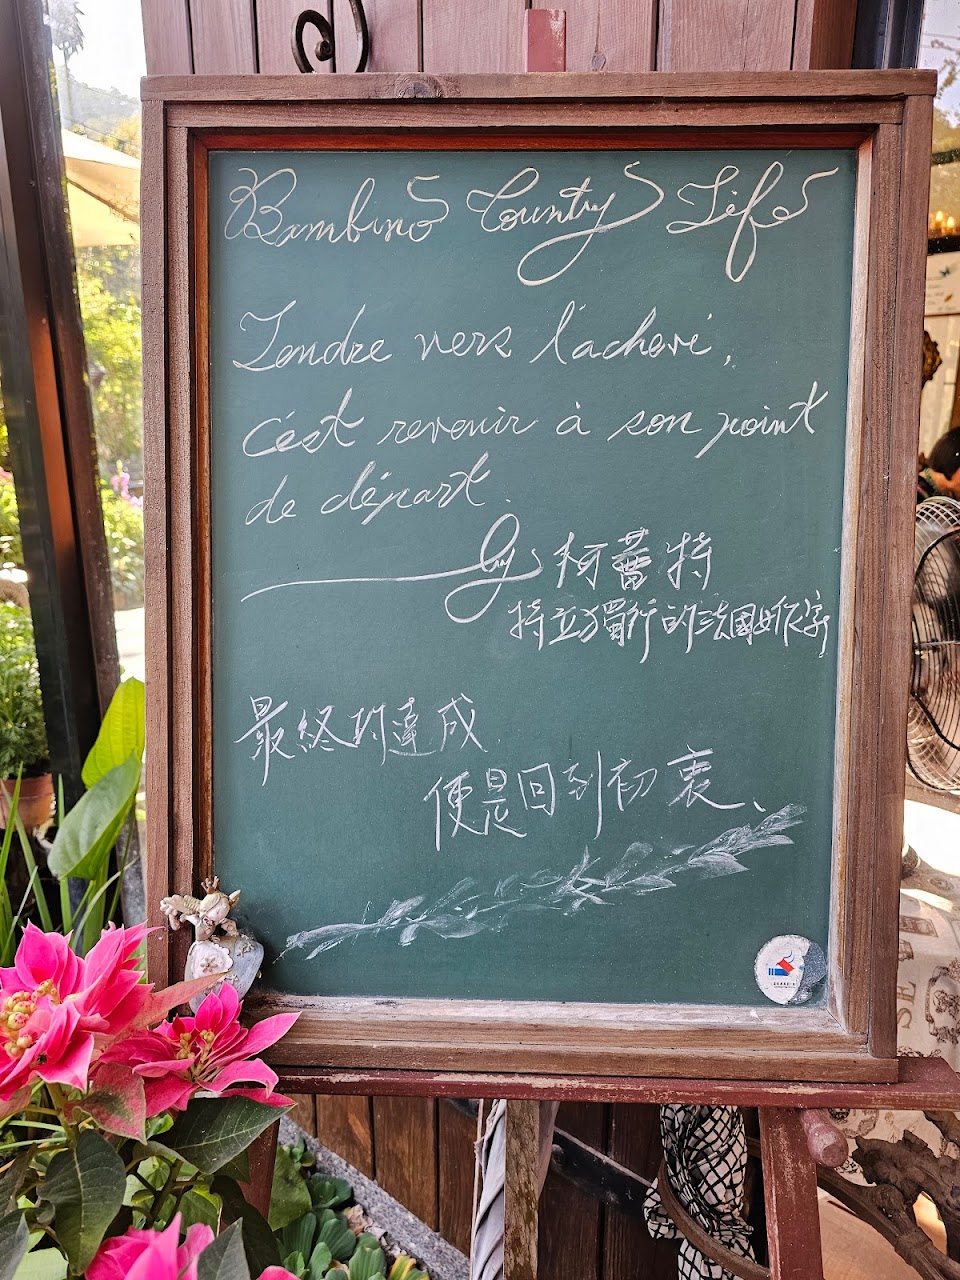 Bambino Country Life
Tendre vers l'achevé,
c'est revenir à son point
de départ.
By 柯蕾特
特立獨行的法國女作家
最終的達成
便是回到初衷、